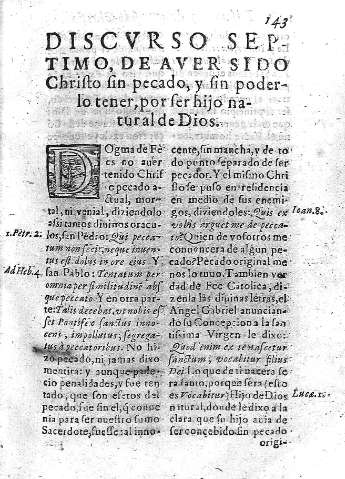 143
DISCVRSO SEP-
TIMO, DE AVER SIDO
Christo sin pecado, y sin poder-
lo tener, por ser hijo na-
tural de Dios.
DOgma de Fè
es no aver
tenido Christ
o pecado a-
ctual, mor-
tal, ni venial, diziendolo
assi tantos divinos oracu-
1.Petr.2.
los, san Pedro: Quia pecca-
tum non fecit, neque inuen-
tus est dolus in ore eius. Y
Ad Heb.4.
san Pablo: Tentatum per
omnia per similitudinē abs
que peccato. Y en otra par-
te: Talis decebat, vt nobis es-
set Pontifex sanctus inno-
cens, impollutus, segrega-
tus à peccatoribus. No hi-
zo pecado, ni jamas dixo
mentira: y aunque pade-
cio penalidades, y fue ten-
tado, que son efetos del
pecado, fue sin el, q̃ conue
nia para ser nuestro sumo
Sacerdote, fuesse al inno-
cente, sin mancha, y de to
do punto separado de ser
pecador. Y el mismo Chris
to se puso en residencia
en medio de sus enemi-
gos, diziendoles: Quis ex
Ioan.8.
vobis arguet me de pecca-
to? Quien de vosotros me
convencera de algun pe-
cado? Pecado original me
nos lo tuuo. Tambien ver
dad de Fee Catolica, di-
zenla las diuinas letras, el
Angel Gabriel anuncian-
do su Concepcion a la san
tissima Virgen le dixo:
Quod enim ex te nascetur
sanctum, vocabitur filius
Dei. Lo que de ti nacera se
ra santo, porque serà (esto
Luca.1.
es Vocabitur) Hijo de Dios
natural, donde le dixo a la
clara que su hijo avia de
ser concebido sin pecado
origi-